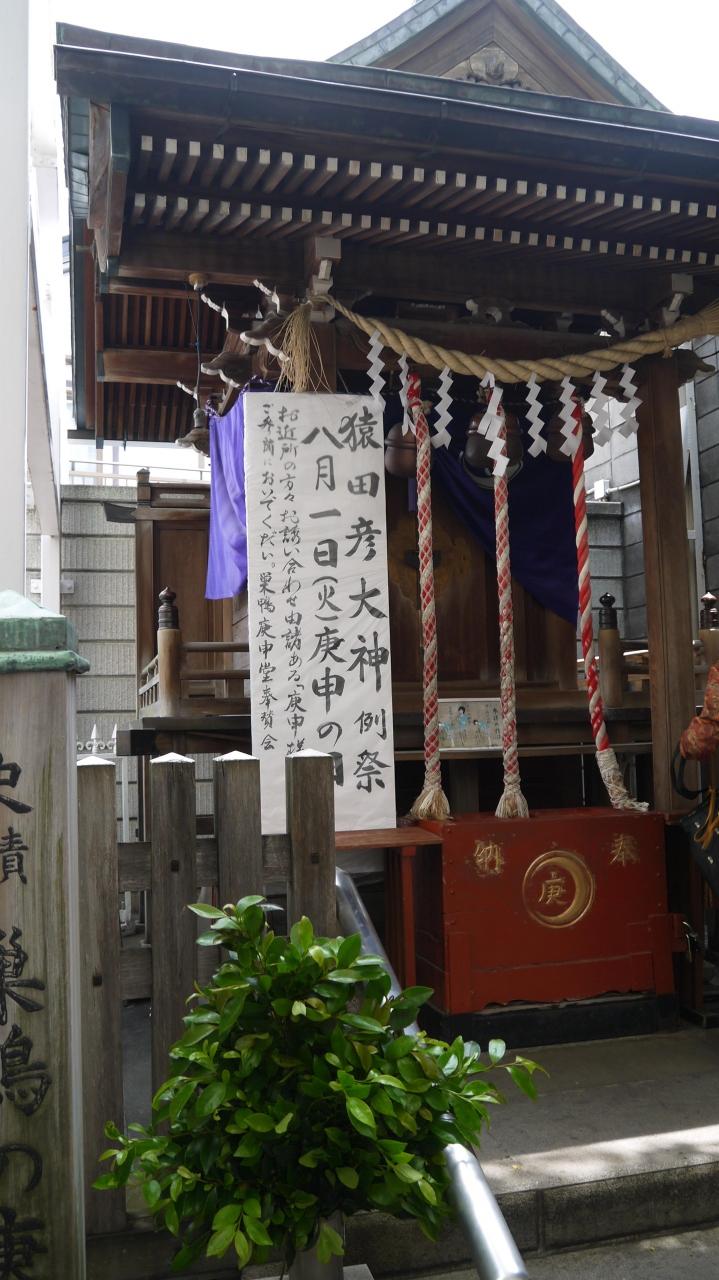 猿田彦大神 例祭
八月一日(火)庚申の日
お近所の方々お誘い合わせ由諸ある「庚申様
ご参詣においでください。巣鴨庚申堂奉賛会
奉納
庚
史蹟 巣鴨の庚